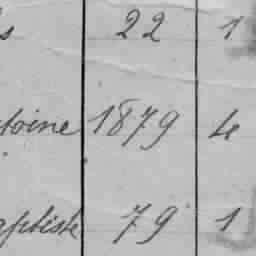 s 22 1
toine 1879 4
aptiste 79 1